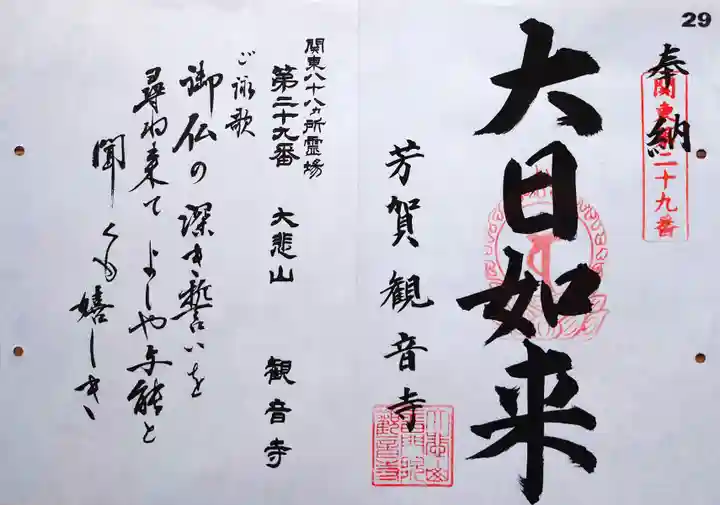 29
奉納
関東第二十九番
大日如来
芳賀観音寺
大悲山
普門院
観音寺
関東八十八ヵ所霊場
第二十九番 大悲山 観音寺
ご詠歌
御仏の深き誓いを
尋ね来てよしや与能と
聞くも嬉しき